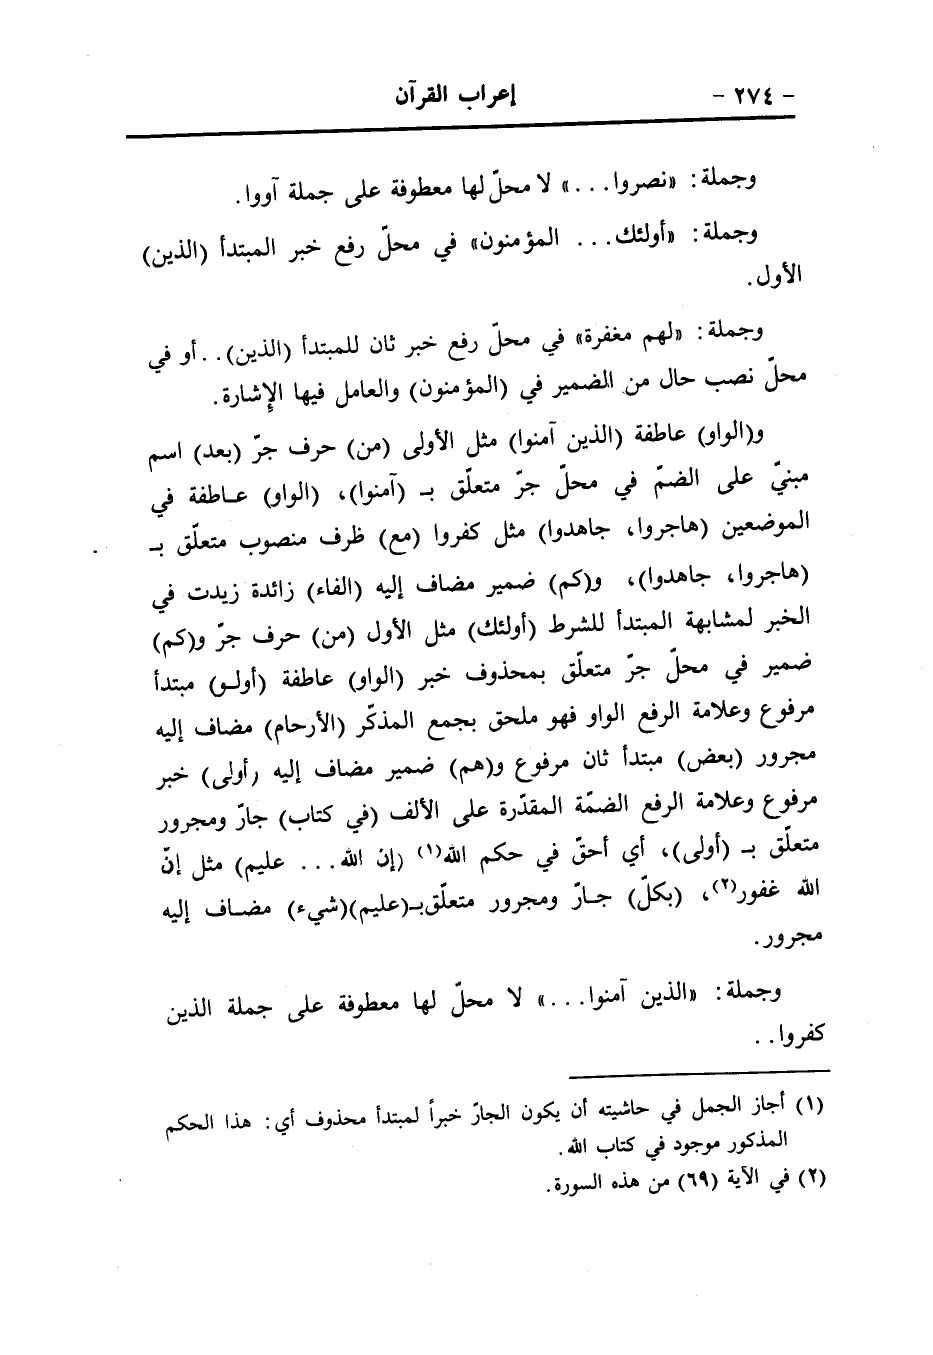 - ٢٧٤ - إعراب القرآن
وجملة: «نصروا...» لا محلّ لها معطوفة على جملة آووا.
وجملة: «أولئك... المؤمنون» في محلّ رفع خبر المبتدأ (الذين)
الأول.
وجملة: «لهم مغفرة» في محلّ رفع خبر ثان للمبتدأ (الذين)..أو في
محلّ نصب حال من الضمير في (المؤمنون) والعامل فيها الإشارة.
و(الواو) عاطفة (الذين آمنوا) مثل الأولى (من) حرف جرّ (بعد) اسم
مبنيّ على الضمّ في محلّ جرّ متعلّق بـ (آمنوا)، (الواو) عـاطفة في
الموضعين (هاجروا، جاهدوا) مثل كفروا (مع) ظرف منصوب متعلّق بـ
(هاجروا، جاهدوا)، و(كم) ضمير مضاف إليه (الفاء) زائدة زيدت في
الخبر لمشابهة المبتدأ للشرط (أولئك) مثل الأول (من) حرف جرّ و(كم)
ضمير في محلّ جرّ متعلّق بمحذوف خبر (الواو) عاطفة (أولـو) مبتدأ
مرفوع وعلامة الرفع الواو فهو ملحق بجمع المذكّر (الأرحام) مضاف إليه
مجرور (بعض) مبتدأ ثان مرفوع و(هم) ضمير مضاف إليه (أولى) خبر
مرفوع وعلامة الرفع الضمّة المقدّرة على الألف (في كتاب) جارّ ومجرور
متعلّق بـ (أولى)، أي أحقّ في حكم الله(١) (إن الله... عليم) مثل إنّ
الله غفور(٢)، (بكلّ) جـارّ ومجرور متعلّق بـ(عليم)(شيء) مضـاف إليه
مجرور.
وجملة: «الذين آمنوا...» لا محلّ لها معطوفة على جملة الذين
كفروا..
(١) أجاز الجمل في حاشيته أن يكون الجارّ خبراً لمبتدأ محذوف أي: هذا الحكم
المذكور موجود في كتاب الله.
(٢) في الآية (٦٩) من هذه السورة.